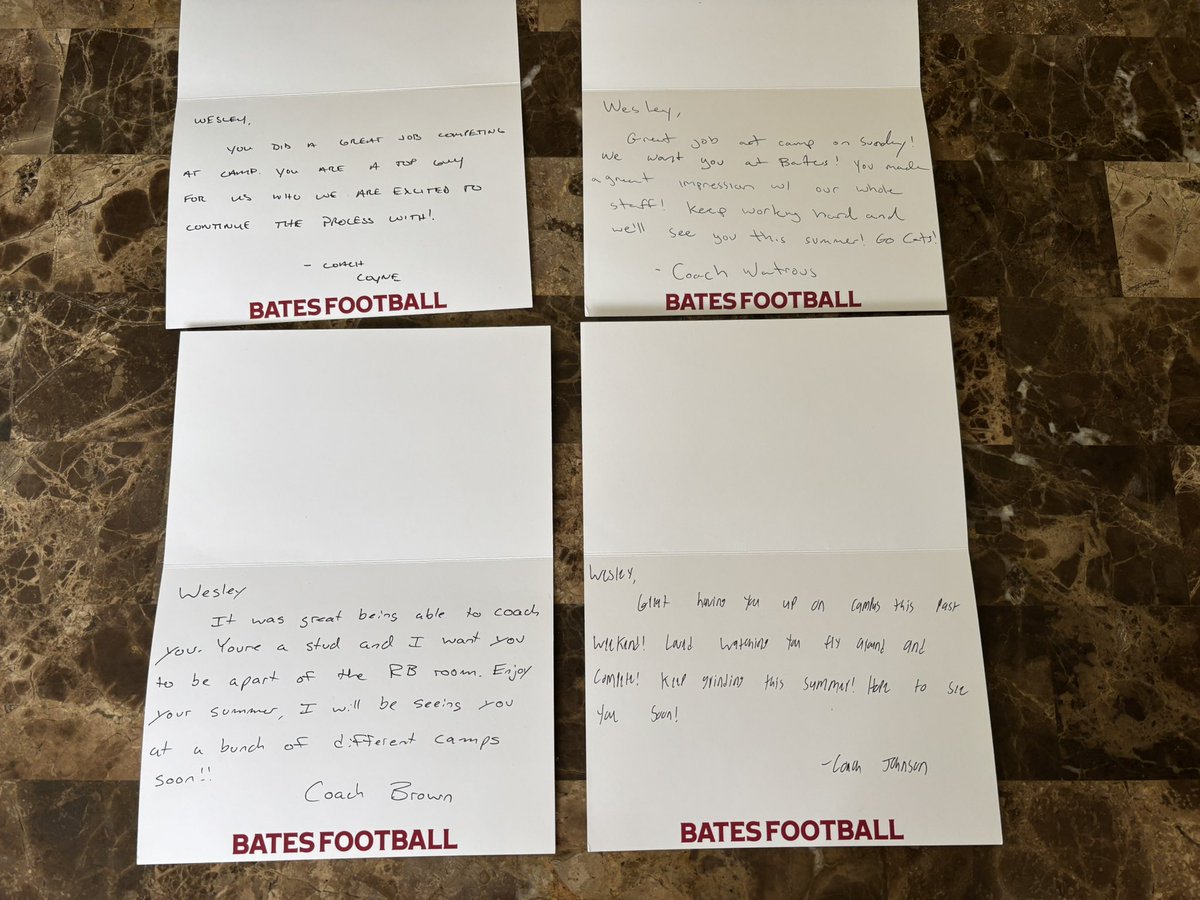 WESLEY,
YOU DID A GREAT JOB COMPETING
AT CAMP. YOU ARE A TOP GUY
FOR US WHO WE ARE EXCITED TO
CONTINUE THE PROCESS WITH!
- COACH
COYNE
BATES FOOTBALL
Wesley,
Great job at camp on Sunday!
We want you at Bates! You made
a great impression w/ our whole
staff! Keep working hard and
we'll see you this summer! Go Cats!
- Coach Watrous
BATES FOOTBALL
Wesley
It was great being able to coach
you. Youre a stud and I want you
to be apart of the RB room. Enjoy
your summer, I will be seeing you
at a bunch of different camps
soon!!
Coach Brown
BATES FOOTBALL
Wesley,
Great having you up on campus this past
weekend! Loved watching you fly around and
compete! Keep grinding this summer! Hope to see
you soon!
-Coach Johnson
BATES FOOTBALL